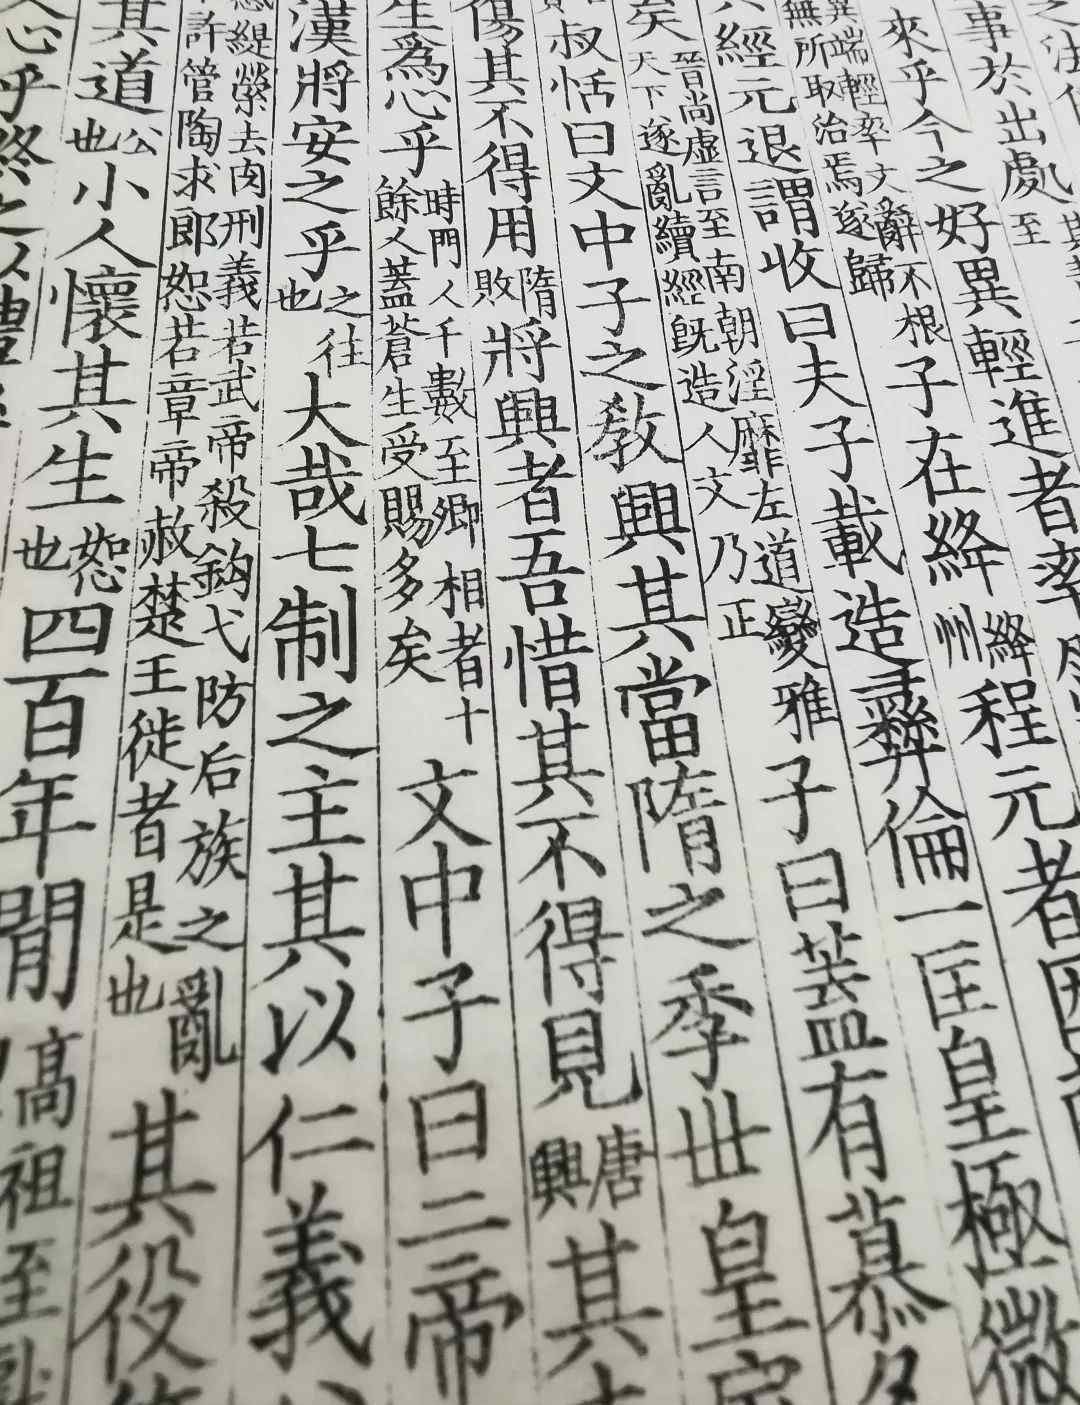 事於出處至
來乎今之好異輕進者率
異端輕率文辭不根無所取治焉遂歸子在絳絳州程元者因
經元退謂收曰夫子載造彝倫一匡皇極微
矣晉尚虛言至南朝淫靡左道變雅天下遂亂續經既造人文乃正子曰蓋有慕
叔恬曰文中子之教興其當隋之季世皇家
傷其不得用隋敗將興者吾惜其不得見唐興其
生爲心乎時門人千數至卿相者十餘人蓋蒼生受賜多矣文中子曰二帝
漢將安之乎之往也大哉七制之主其以仁義
緹縈去肉刑義若武帝殺鈎弋防后族之亂許管陶求郎恕若章帝赦楚王徙者是也其役
其道公也小人懷其生恕也四百年間高祖至
心乎終之以禮